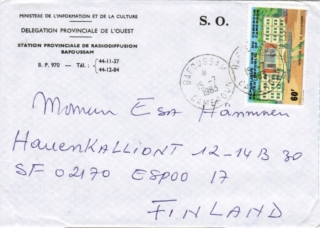 MINISTERE DE L'INFORMATION ET DE LA CULTURE
S. O.
DELEGATION PROVINCIALE DE L'OUEST
STATION PROVINCIALE DE RADIODIFFUSION
BAFOUSSAM
B. P. 970 — Tél. : 44-11-37
44-12-84
BAFOUSSAM
15-7
1983
CAMEROUN
60F
Monsieur Esa Hänninen
Hauenkalliont 12-14 B 30
SF 02170 ESPOO 17
FINLAND